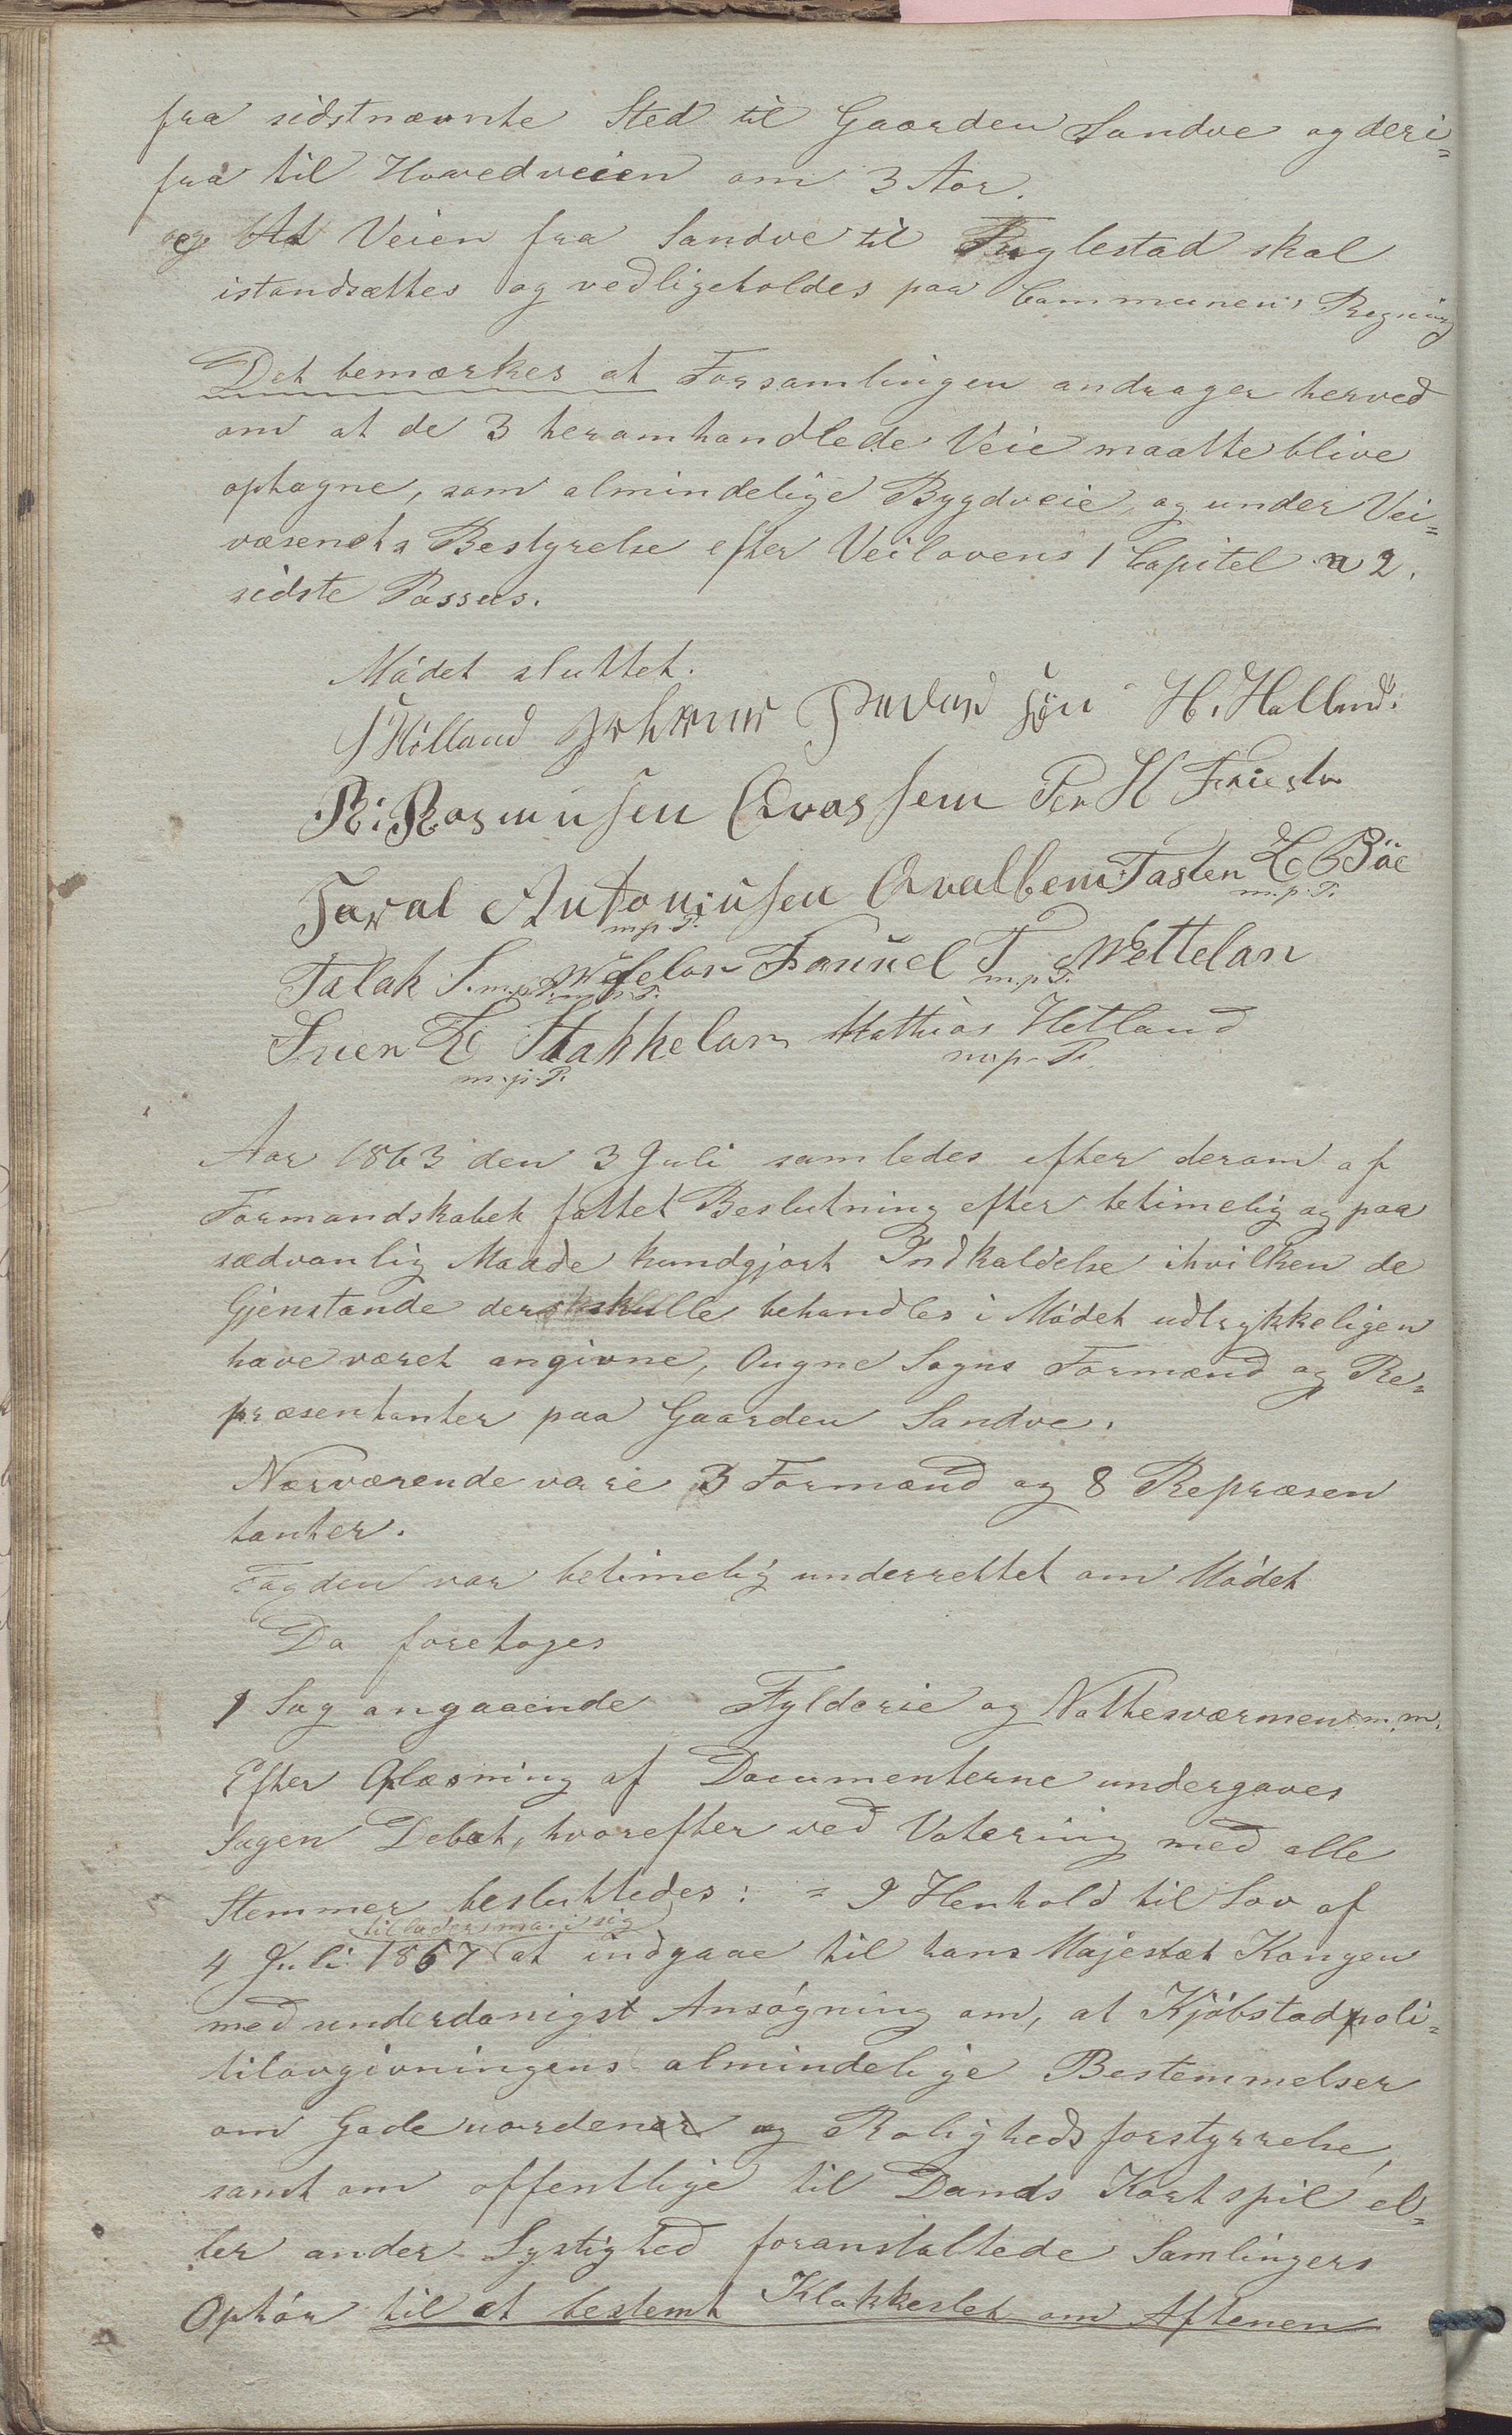 fra sidstnævnte Sted til Gaarden Sandve og deri=
fra til Hovedveien om 3 Aar.
og At Veien fra Sandve til Fuglestad skal
istandsættes og vedligeholdes paa Communens Regning
Det bemærkes at Forsamlingen andrager herved
om at de 3 heromhandlede Veie maatte blive
optagne, som almindelige Bygdveie, og under Vei=
væsenets Bestyrelse efter Veilovens 1 Capitel 2.
sidste Passus.
Mödet sluttet.
Hölland Peder H. Halland
R. Rasmusen Qvassem Per H
Taral Antoniusen Qvalbem Tasten E Böe
m.p.P. m.p.P.
Talak S. Samuel T Wettelan
m.p.P. m.p.P.
Sven E Stokkelan Mathias Hetland
m.p.P. m.p.P.
Aar 1863 den 3 Juli samledes efter derom af
Formandskabet fattet Beslutning efter betimelig og paa
sædvanlig Maade kundgjort Indkaldelse ihvilken de
Gjenstande der skulle behandles i Mödet udtrykkeligen
have været angivne, Ougne Sogns Formænd og Re=
præsentanter paa Gaarden Sandve.
Nærværende vare 3 Formænd og 8 Repræsen
tanter.
Fogden var betimelig underrettet om Mödet
Da foretoges
1 Sag angaaende Fylderie og Nattesværmen m.m.
Efter Oplæsning af Documenterne undergaves
Sagen Debat, hvorefter ved Votering med alle
Stemmer besluttedes: = I Henhold til Lov af
tillader man sig
4 Juli 1857 at indgaae til hans Majestæt Kongen
med underdanigst Ansögning om, at Kjöbstadpoli=
tilovgivningens almindelige Bestemmelser
om Gadeuorden og Rolighedsforstyrrelse,
samt om offentlige til Dands Kortspil el=
ler anden Lystighed foranstaltede Samlingers
Ophör til et bestemt Klokkeslet om Aftenen